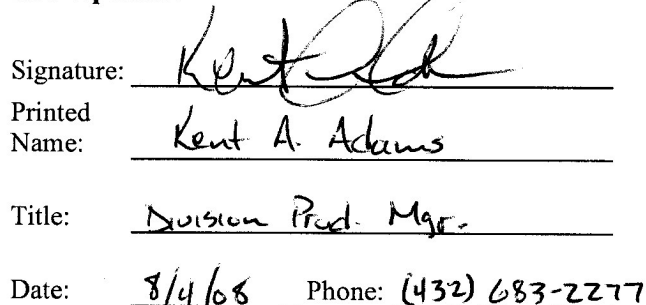 Signature: Kent
Printed
Name: Kent A. Adams
Title: Division Prod. Mgr.
Date: 8/4/08 Phone: (432) 683-2277